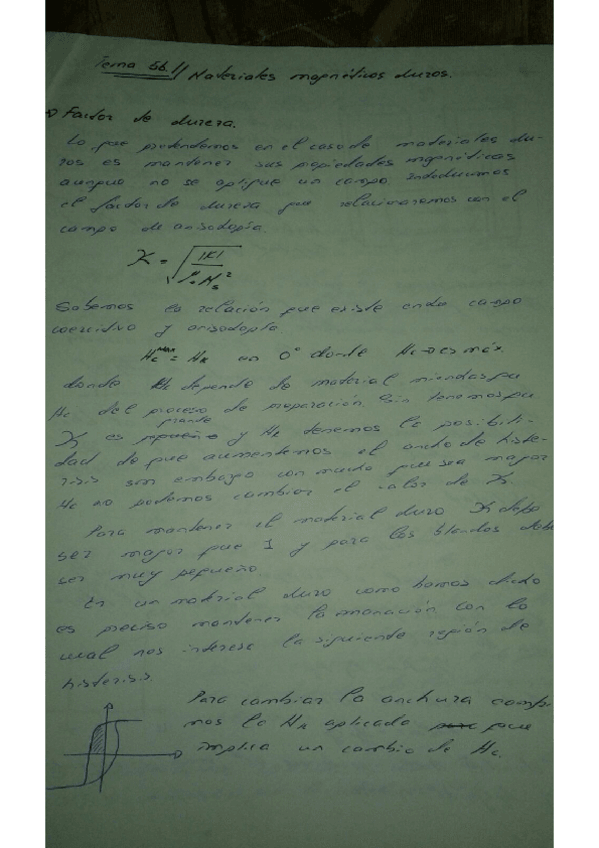 Tema 6b.// Materiales magnéticos duros.
→ Factor de dureza.
Lo que pretendemos en el caso de materiales du-
ros es mantener sus propiedades magnéticas
aunque no se aplique un campo. Introducimos
el factor de dureza que relacionaremos con el
campo de anisotropía.
K = √(|K| / μ₀Ms²)
Sabemos la relación que existe entre campo
coercitivo y anisotropía.
Hc^max = Hk en 0° donde Hc → es máx
donde Hk depende de material mientras que
Hc del proceso de preparación. Sin tenemos que
K es pequeño grande y Hk tenemos la posibili-
dad de que aumentemos el ancho de histe-
risis sin embargo con mucho que sea mayor
Hc no podemos cambiar el valor de K.
Para mantener el material duro K debe
ser mayor que 1 y para los blandos debe
ser muy pequeño.
En un material duro como hemos dicho
es preciso mantener la imanación con lo
cual nos interesa la siguiente región de
histerisis.
Para cambiar la anchura
mos la Hk aplicado que
implica un cambio de Hc.